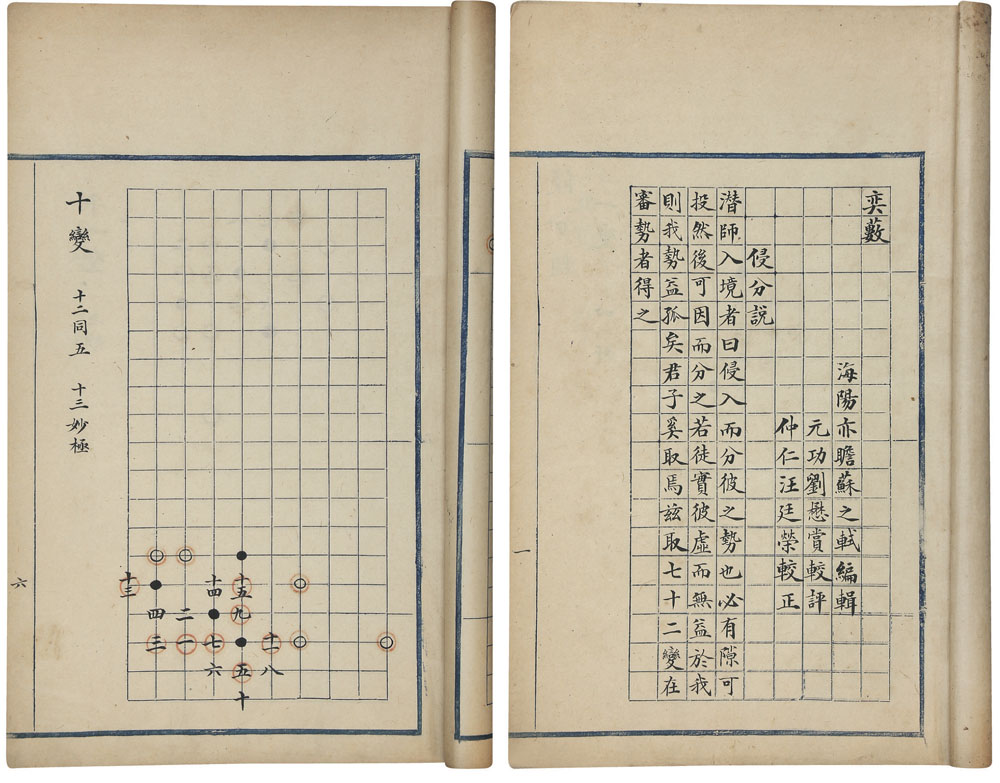 奕藪
海陽亦瞻蘇之軾編輯
元功劉懋賞較評
仲仁汪廷榮較正
侵分説
潜師入境者曰侵入而分彼之勢也必有隙可
投然後可因而分之若徒實彼虛而無益於我
則我勢益孤矣君子奚取焉茲取七十二變在
審勢者得之
一
十三 十四 十五
四 二 九
三 一 七 十一
六 五 八
十
十變 十二同五 十三妙極
六